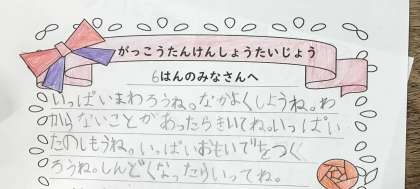 がっこうたんけんしょうたいじょう
6はんのみなさんへ
いっぱいまわろうね。なかよくしようね。わ
からないことがあったらきいてね。いっぱい
たのしもうね。いっぱいおもいでをつく
ろうね。しんどくなったらいってね。